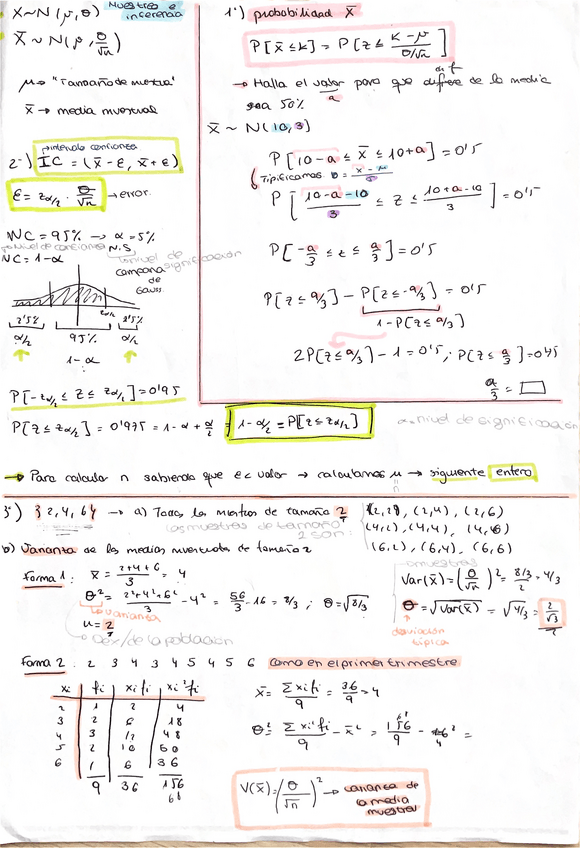 X~N(μ,θ) Muestreo e inferencia
X̄ ~ N(μ, θ/√n)
μ → "Tamaño de muestra"
X̄ → media muestral
2º) intervalo confianza
IC = (x̄ - ε, x̄ + ε)
ε = zα/2 · θ/√n → error.
NC = 95% → α = 5%
Nivel de confianza N.S nivel de significación
NC = 1-α
campana de Gauss.
zα/2
2'5% 2'5%
α/2 95% α/2
1-α
P[-zα/2 ≤ z ≤ zα/2] = 0'95
P[z ≤ zα/2] = 0'975 = 1-α + α/2 = 1-α/2 = P[z ≤ zα/2]
α = nivel de significación
1º) probabilidad X̄
P[x̄ ≤ k] = P[z ≤ (k-μ)/(θ/√n)]
→ Halla el valor para que difiere de la media
a
sea 50%
X̄ ~ N(10,3)
P[10-a ≤ x̄ ≤ 10+a] = 0'5
Tipificamos
P[(10-a-10)/3 ≤ z ≤ (10+a-10)/3] = 0'5
P[-a/3 ≤ z ≤ a/3] = 0'5
P[z ≤ a/3] - P[z ≤ -a/3] = 0'5
1-P[z ≤ a/3]
2P[z ≤ a/3] - 1 = 0'5;
a/3 = □
→ Para calcular n sabiendo que → calculamos → siguiente entero
3º) {2,4,6} → a) Todas las muestras de tamaño 2
las muestras de tamaño 2 son:
(2,2), (2,4), (2,6)
(4,2), (4,4), (4,6)
(6,2), (6,4), (6,6)
b) Varianza de las medias muestrales de tamaño 2
Forma 1: x̄ = (2+4+6)/3 = 4
θ² = (2²+4²+6²)/3 - 4² = 56/3 - 16 = 8/3; θ = √8/3
varianza
n = 2
de la población
muestras
Var(x̄) = (θ/√n)² = (8/3)/2 = 4/3
θ = √Var(x̄) = √4/3 = 2/√3
desviación típica
Forma 2: 2 3 4 3 4 5 4 5 6 como en el primer trimestre
xi fi xi fi xi² fi
2 1 2 4
3 2 6 18
4 3 12 48
5 2 10 50
6 1 6 36
9 36 156
x̄ = Σxifi/9 = 36/9 = 4
θ² = Σxi²fi/9 - x̄² =
V(x̄) = (θ/√n)² → varianza de la media muestral